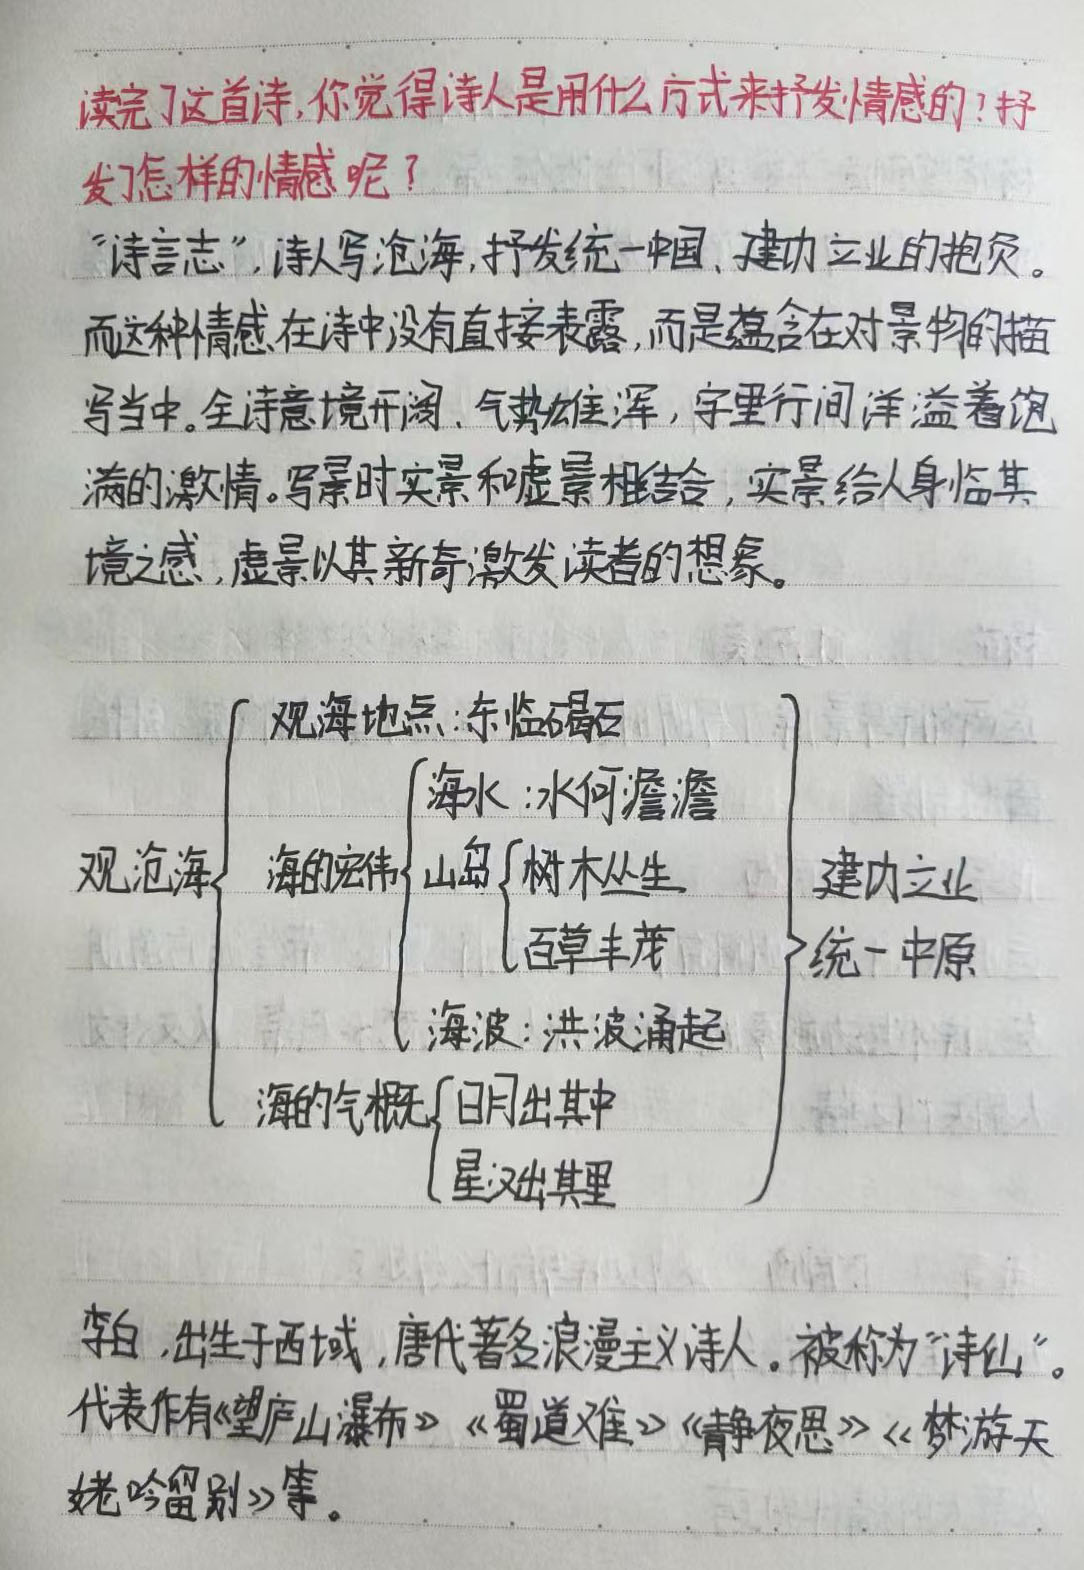 读完了这首诗,你觉得诗人是用什么方式来抒发情感的?抒
发了怎样的情感呢?
“诗言志”,诗人写沧海,抒发统一中国、建功立业的抱负。
而这种情感在诗中没有直接表露,而是蕴含在对景物的描
写当中。全诗意境开阔、气势雄浑,字里行间洋溢着饱
满的激情。写景时实景和虚景相结合,实景给人身临其
境之感,虚景以其新奇激发读者的想象。
观海地点:东临碣石
海水:水何澹澹
观沧海 海的宏伟 山岛 树木丛生 建功立业
百草丰茂 统一中原
海波:洪波涌起
海的气概 日月出其中
星汉出其里
李白,出生于西域,唐代著名浪漫主义诗人。被称为“诗仙”。
代表作有《望庐山瀑布》《蜀道难》《静夜思》《梦游天
姥吟留别》等。